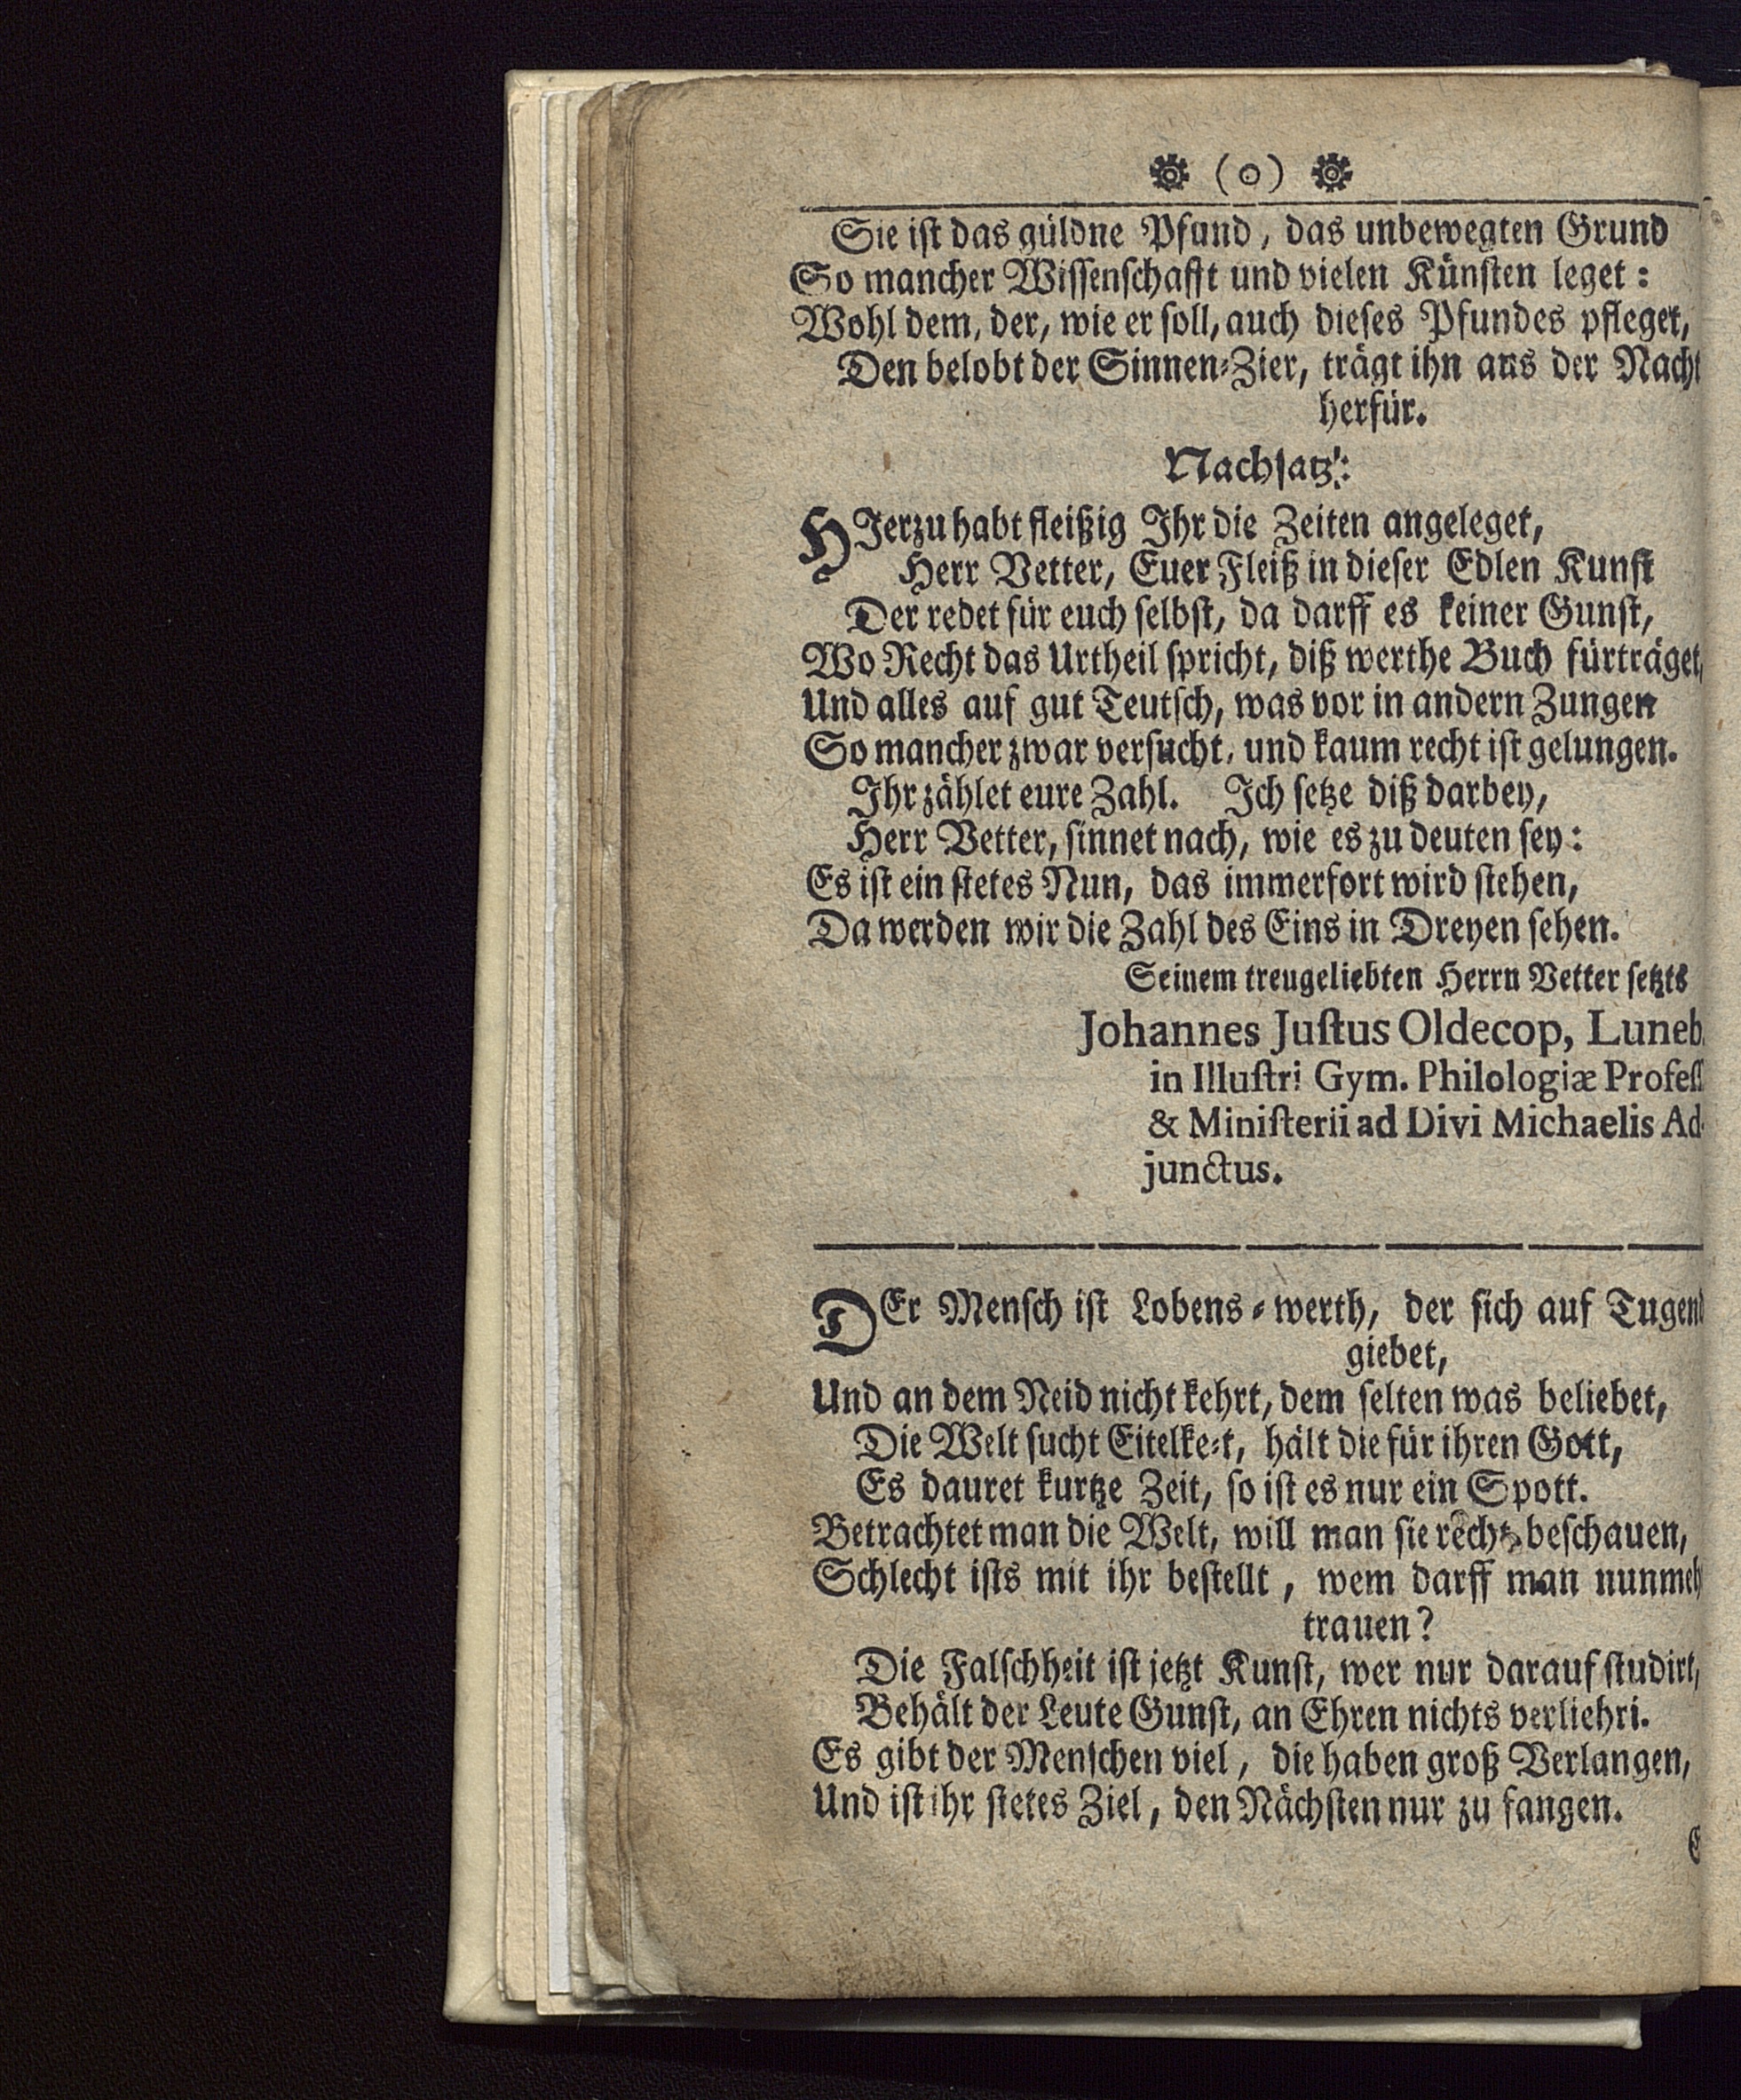 (o)
Sie ist das güldne Pfund, das unbewegten Grund
So mancher Wissenschafft und vielen Künsten leget:
Wohl dem, der, wie er soll, auch dieses Pfundes pfleget,
Den belobt der Sinnen-Zier, trägt ihn aus der Nacht
herfür.
Nachsatz:
HIerzu habt fleißig Ihr die Zeiten angeleget,
Herr Vetter, Euer Fleiß in dieser Edlen Kunst
Der redet für euch selbst, da darff es keiner Gunst,
Wo Recht das Urtheil spricht, diß werthe Buch fürträget,
Und alles auf gut Teutsch, was vor in andern Zungen
So mancher zwar versucht, und kaum recht ist gelungen.
Ihr zählet eure Zahl. Ich setze diß darbey,
Herr Vetter, sinnet nach, wie es zu deuten sey:
Es ist ein stetes Nun, das immerfort wird stehen,
Da werden wir die Zahl des Eins in Dreyen sehen.
Seinem treugeliebten Herrn Vetter setzts
Johannes Justus Oldecop, Luneb.
in Illustri Gym. Philologiæ Profess
& Ministerii ad Divi Michaelis Ad-
junctus.
DEr Mensch ist Lobens-werth, der sich auf Tugend
giebet,
Und an dem Neid nicht kehrt, dem selten was beliebet,
Die Welt sucht Eitelkeit, hält die für ihren Gott,
Es dauret kurtze Zeit, so ist es nur ein Spott.
Betrachtet man die Welt, will man sie recht beschauen,
Schlecht ists mit ihr bestellt, wem darff man nunmeh
trauen?
Die Falschheit ist jetzt Kunst, wer nur darauf studirt,
Behält der Leute Gunst, an Ehren nichts verliehrt.
Es gibt der Menschen viel, die haben groß Verlangen,
Und ist ihr stetes Ziel, den Nächsten nur zu fangen.